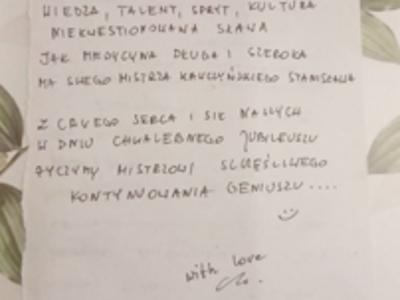 WIEDZA, TALENT, SPRYT, KULTURA
NIEKWESTIONOWANA SŁAWA
JAK MEDYCYNA DŁUGA I SZEROKA
MA SWEGO MISTRZA KAUCZYŃSKIEGO STANISŁAWA
Z CAŁEGO SERCA I SIŁ NASZYCH
W DNIU CHWALEBNEGO JUBILEUSZU
ŻYCZYMY MISTRZOWI SZCZĘŚLIWEGO
KONTYNUOWANIA GENIUSZU....
with love